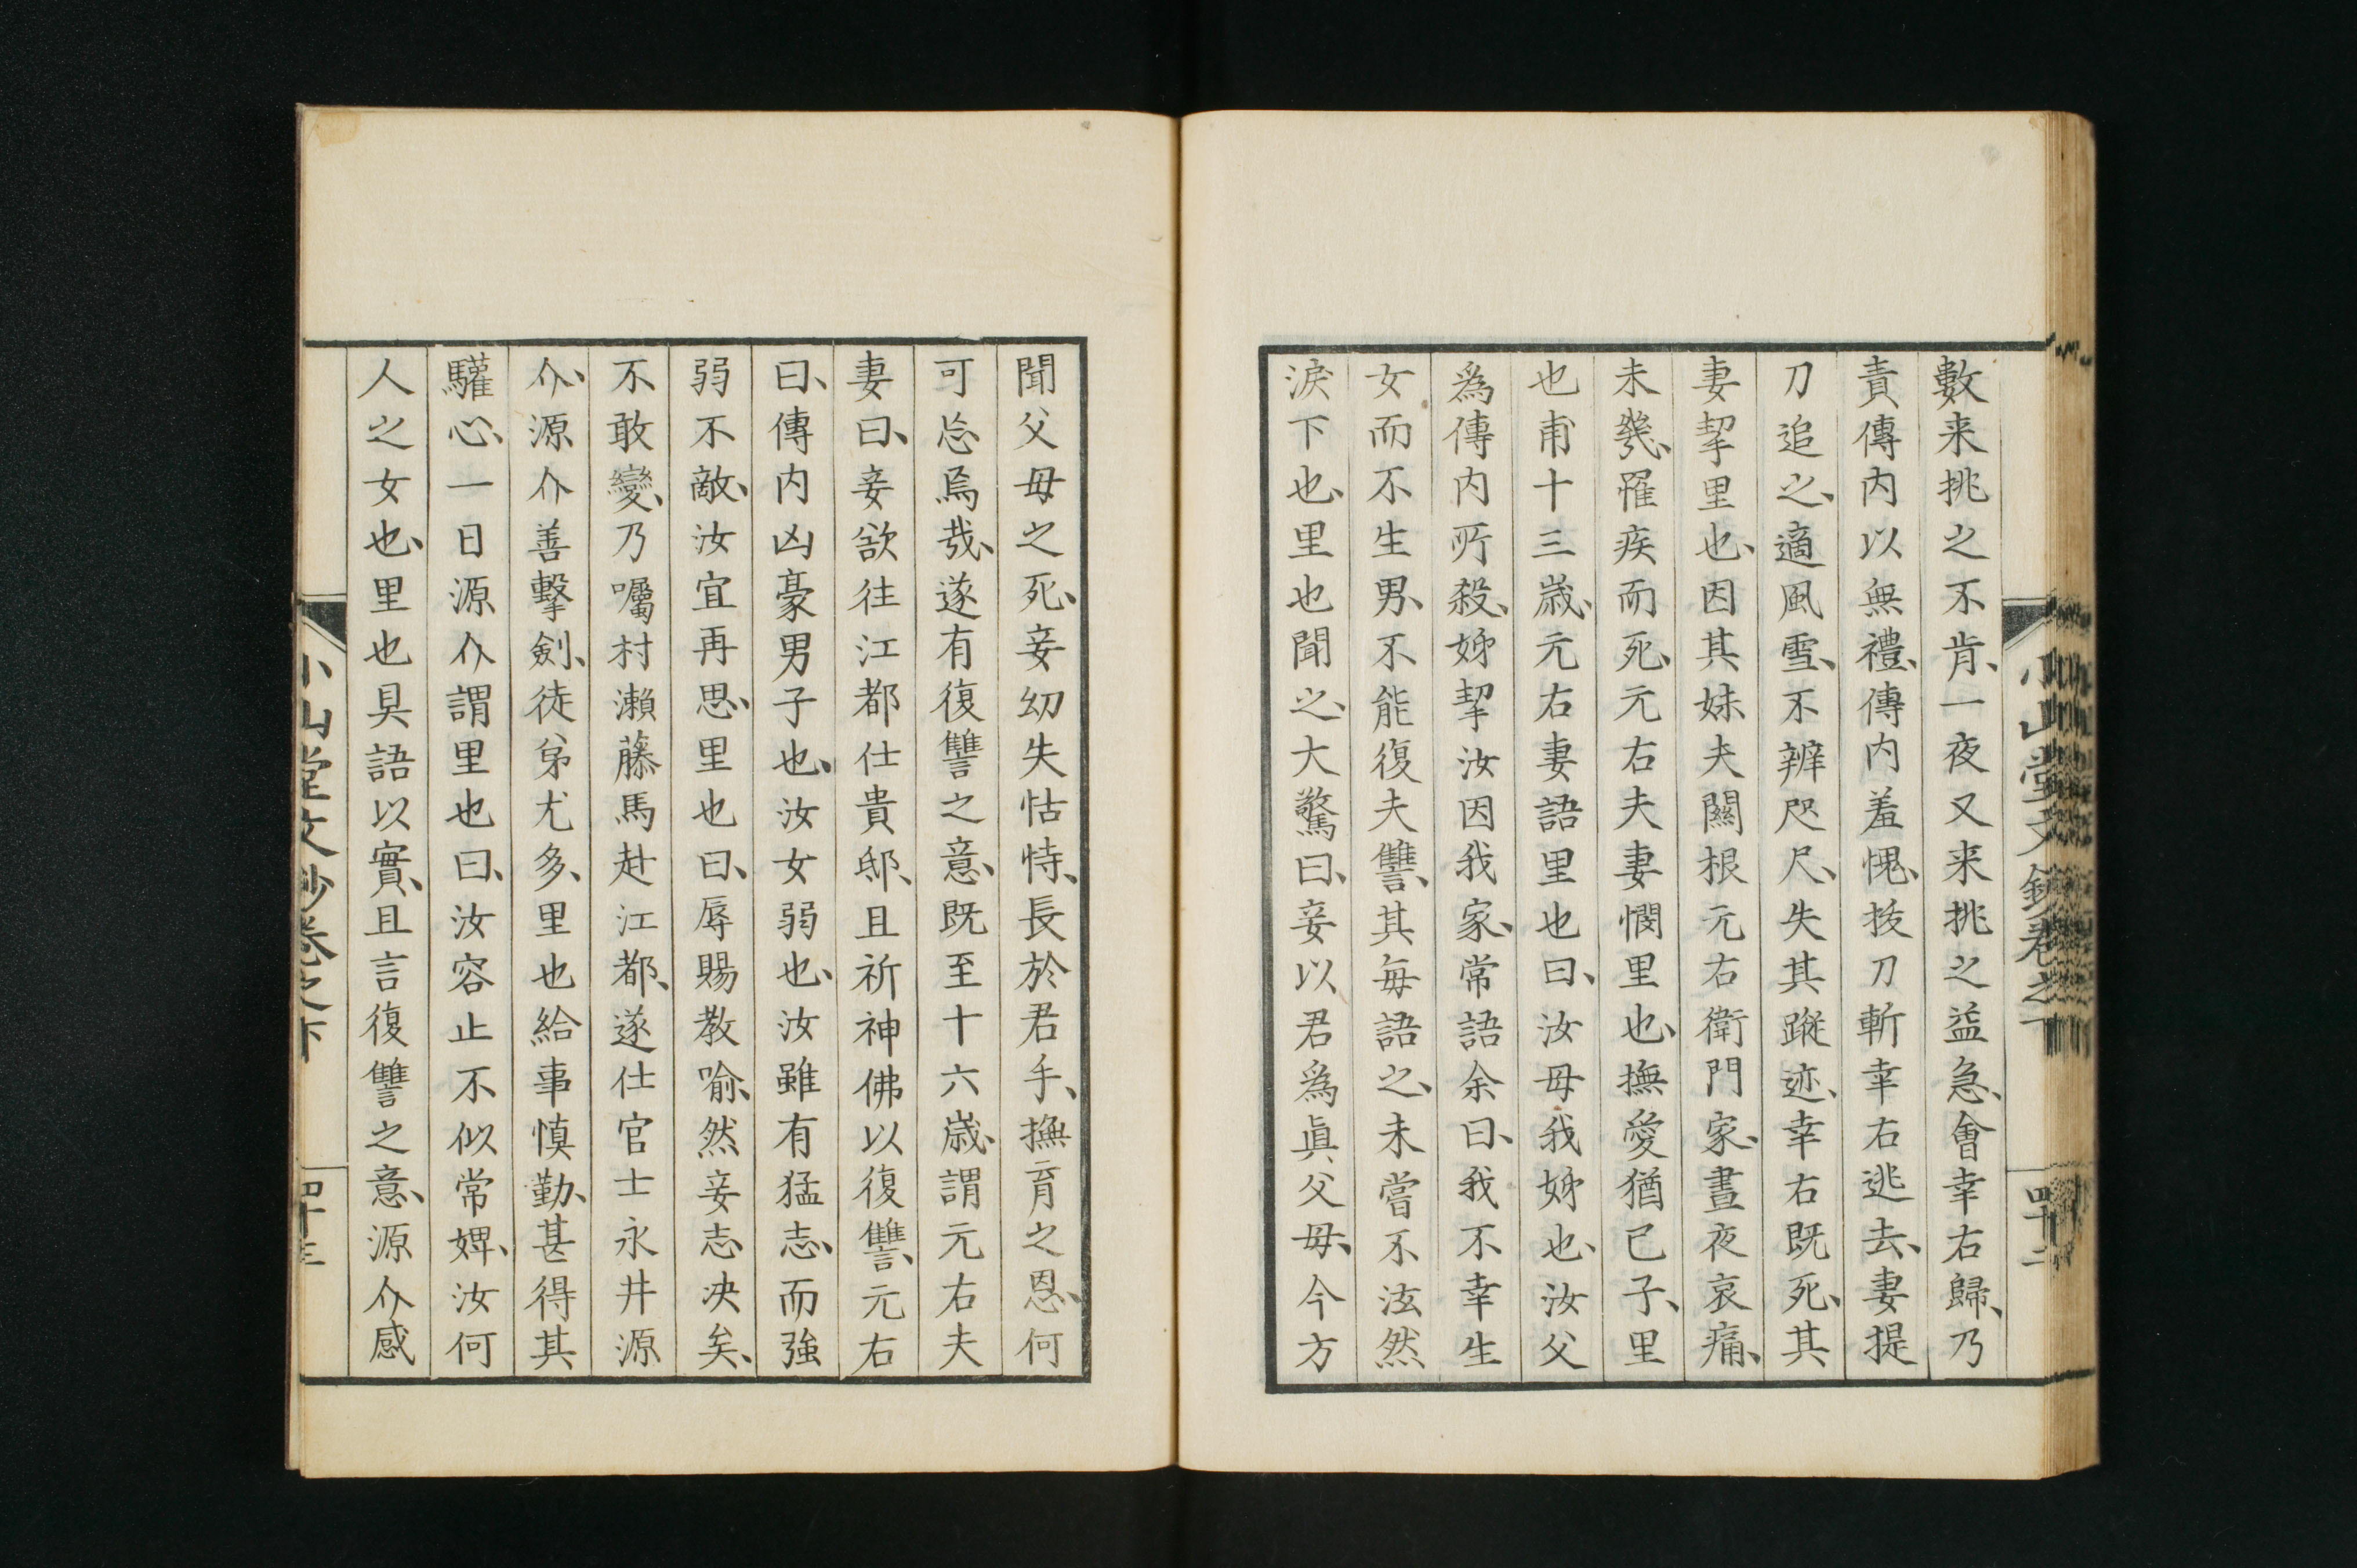 數来挑之不肯、一夜又来挑之益急、會幸右歸、乃
責傳内以無禮、傳内羞愧、拔刀斬幸右逃去、妻提
刀追之、適風雪、不辨咫尺、失其蹤迹、幸右既死、其
妻挈里也、因其妹夫關根元右衛門家、晝夜哀痛、
未幾、罹疾而死、元右夫妻憫里也、撫愛猶己子、里
也甫十三歳、元右妻語里也曰、汝母我姊也、汝父
爲傳内所殺、姊挈汝因我家、常語余曰、我不幸生
女而不生男、不能復夫讐、其毎語之、未嘗不泫然
淚下也、里也聞之、大驚曰、妾以君爲眞父母、今方
小山堂文鈔卷之下
四十二
聞父母之死、妾幼失怙恃、長於君手、撫育之恩、何
可忘焉哉、遂有復讐之意、既至十六歳、謂元右夫
妻曰、妾欲往江都仕貴邸、且祈神佛以復讐、元右
曰、傳内凶豪男子也、汝女弱也、汝雖有猛志、而強
弱不敵、汝宜再思、里也曰、辱賜教喩、然妾志决矣、
不敢變、乃囑村瀬藤馬赴江都、遂仕官士永井源
介、源介善撃劍、徒弟尤多、里也給事愼勤、甚得其
驩心、一日源介謂里也曰、汝容止不似常婢、汝何
人之女也、里也具語以實、且言復讐之意、源介感
小山堂文鈔卷之下
四十三